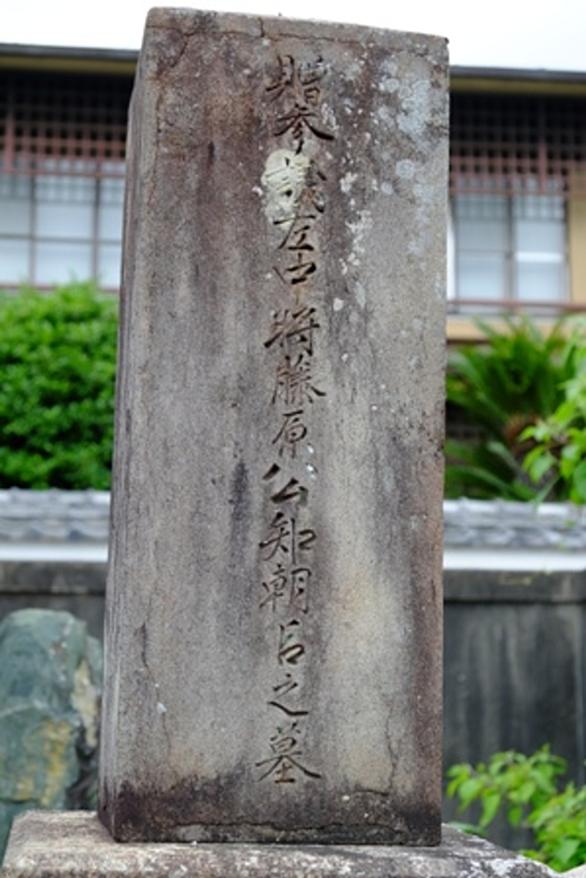 贈参議左中将藤原公知朝臣之墓